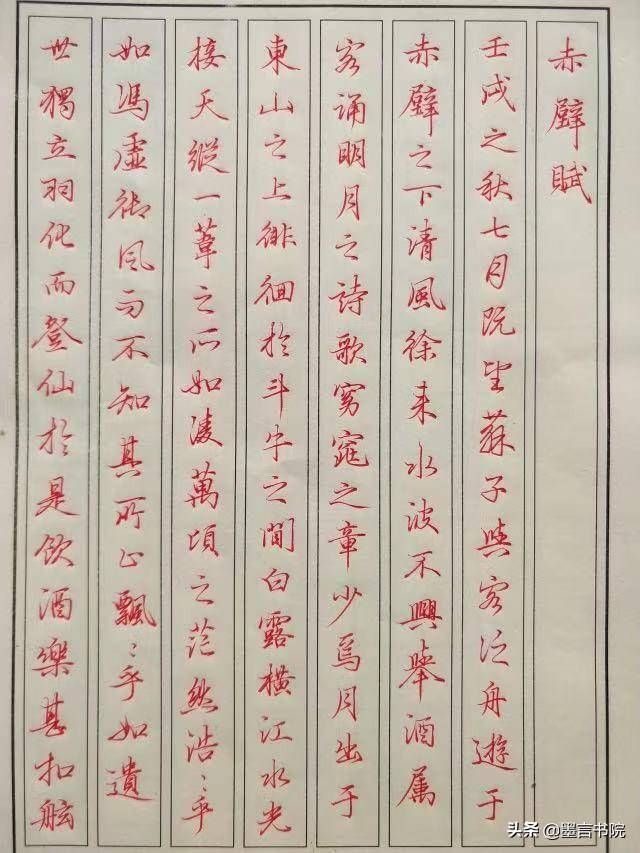 赤壁賦
壬戌之秋七月既望蘇子與客泛舟遊于
赤壁之下清風徐来水波不興舉酒属
客誦明月之詩歌窈窕之章少焉月出于
東山之上徘徊於斗牛之間白露橫江水光
接天縱一葦之所如凌萬頃之茫然浩〻乎
如馮虛御风而不知其所止飄〻乎如遺
世獨立羽化而登仙於是飲酒樂甚扣舷
头条 @墨言书院